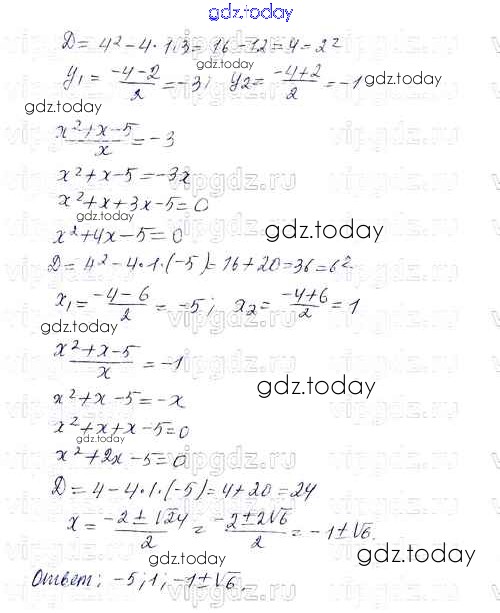 gdz.today
D = 4² - 4 · 1 · 3 = 16 - 12 = 4 = 2²
gdz.today
y₁ = (-4-2)/2 = -3; y₂ = (-4+2)/2 = -1
gdz.today
gdz.today
vipgdz.ru
(x²+x-5)/x = -3
x² + x - 5 = -3x
vipgdz.ru
x² + x + 3x - 5 = 0
gdz.today
x² + 4x - 5 = 0
gdz.today
D = 4² - 4 · 1 · (-5) = 16 + 20 = 36 = 6²
x₁ = (-4-6)/2 = -5; x₂ = (-4+6)/2 = 1
gdz.today
(x²+x-5)/x = -1
gdz.today
x² + x - 5 = -x
x² + x + x - 5 = 0
gdz.today
x² + 2x - 5 = 0
vipgdz.ru
D = 4 - 4 · 1 · (-5) = 4 + 20 = 24
x = (-2 ± √24)/2 = (-2 ± 2√6)/2 = -1 ± √6.
gdz.today
gdz.today
Ответ: -5; 1; -1 ± √6.